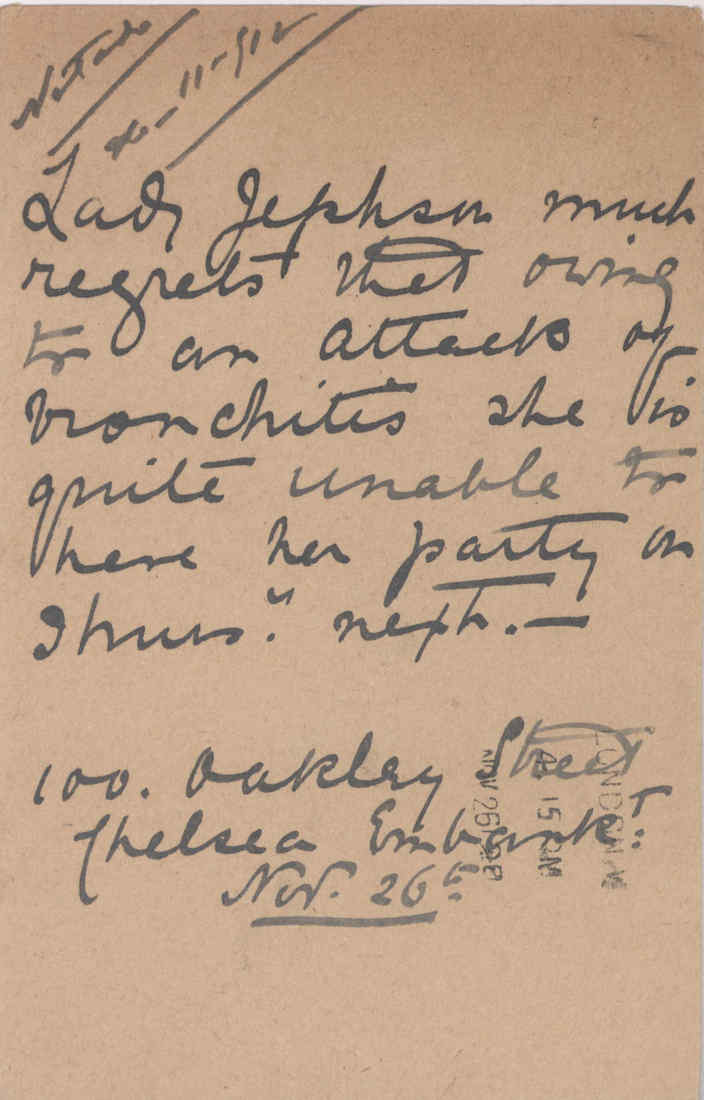 Noted
26-11-912
Lady Jephson much
regrets that owing
to an attack of
bronchitis she is
quite unable to
have her party on
Thurs.y next.—
100. Oakley Street
Chelsea Embankt.
Nov. 26th
LONDON W
4 15 PM
NOV 26